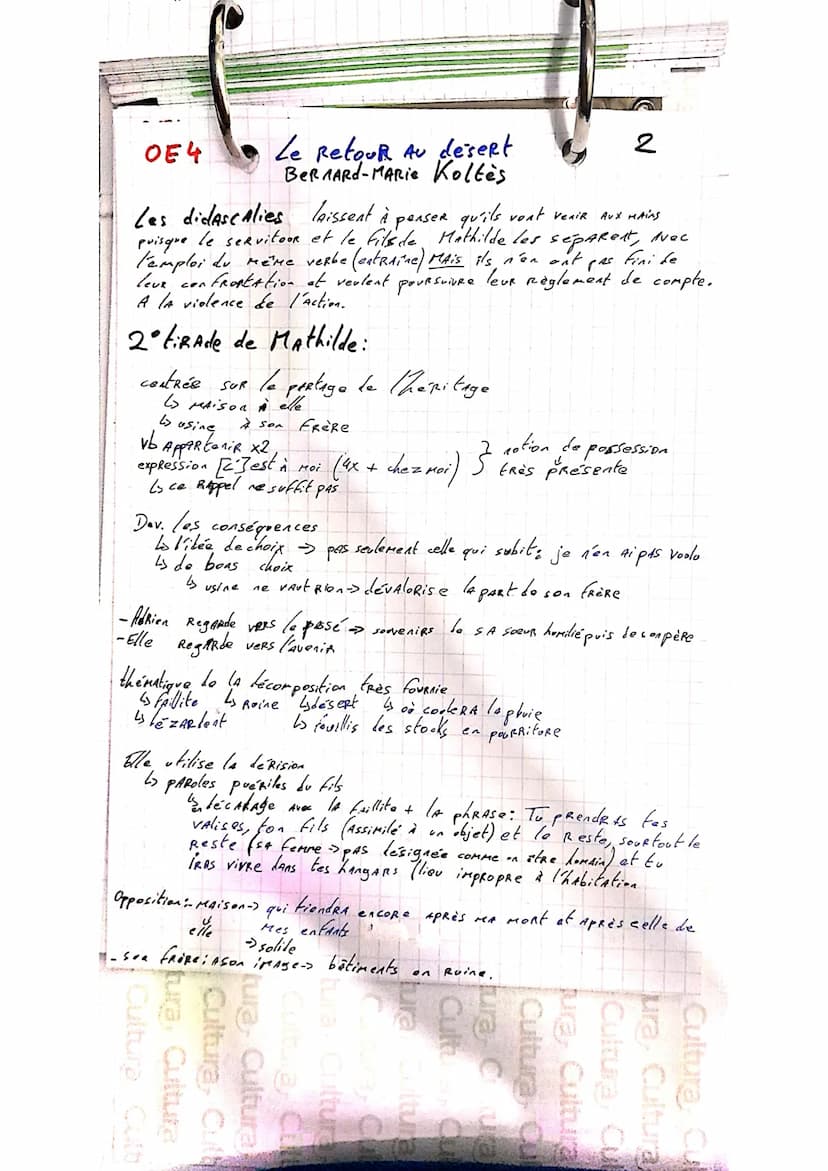 OE4 Le Retour au désert 2
Bernard-Marie Koltès
Les didascalies laissent à penser qu'ils vont venir aux mains
puisque le serviteur et le fils de Mathilde les séparent, avec
l'emploi du même verbe (entraîne) MAIS ils n'en ont pas fini de
leur confrontation et veulent poursuivre leur règlement de compte.
A la violence de l'action.
2° tirade de Mathilde:
centrée sur le partage de l'héritage
↳ maison à elle
↳ usine à son frère
Vb Appartenir x2 } notion de possession
expression [c'] est à moi (4x + chez moi) } très présente
↳ ce rappel ne suffit pas
Dev. les conséquences
↳ l'idée de choix → pas seulement celle qui subit: je n'en ai pas voulu
↳ de bons choix
↳ usine ne vaut rien → dévalorise la part de son frère
- Adrien regarde vers le passé → souvenirs de sa soeur humilié puis de son père
- Elle regarde vers l'avenir
thématique de la décomposition très fournie
↳ faillite ↳ ruine ↳ désert ↳ où coulera la pluie
↳ lézardent ↳ fouillis des stocks en pourriture
Elle utilise la dérision
↳ paroles puériles du fils
↳ en décalage avec la faillite + la phrase: Tu prendras tes
valises, ton fils (assimilé à un objet) et le reste, surtout le
reste (sa femme → pas désignée comme un être humain) et tu
iras vivre dans tes hangars (lieu impropre à l'habitation
Opposition: - maison → qui tiendra encore après ma mort et après celle de
elle mes enfants
→ solide
- son frère: à son image → bâtiments en ruine.
Cultura